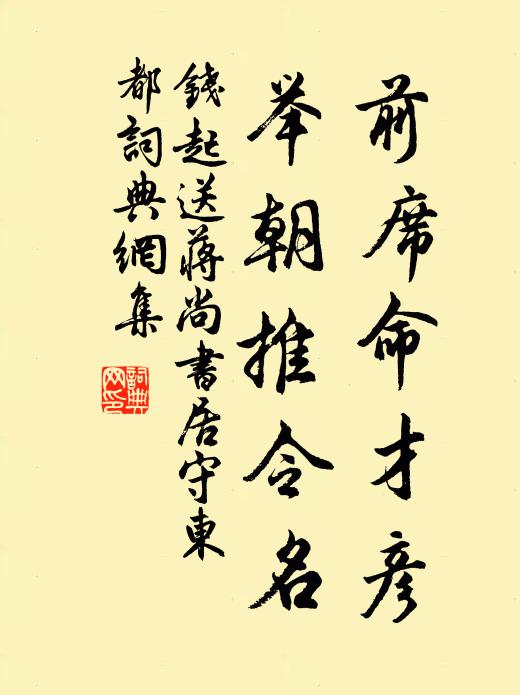 前席命才彦
举朝推令名
錢起送蔣尚書居守東
都詞典網集
詞典
网印